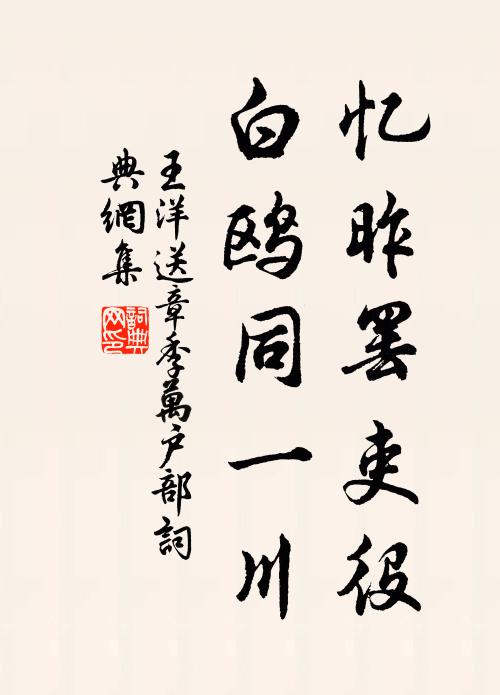 忆昨罢吏役
白鸥同一川
王洋送章季萬户部詞
典網集
詞典网印